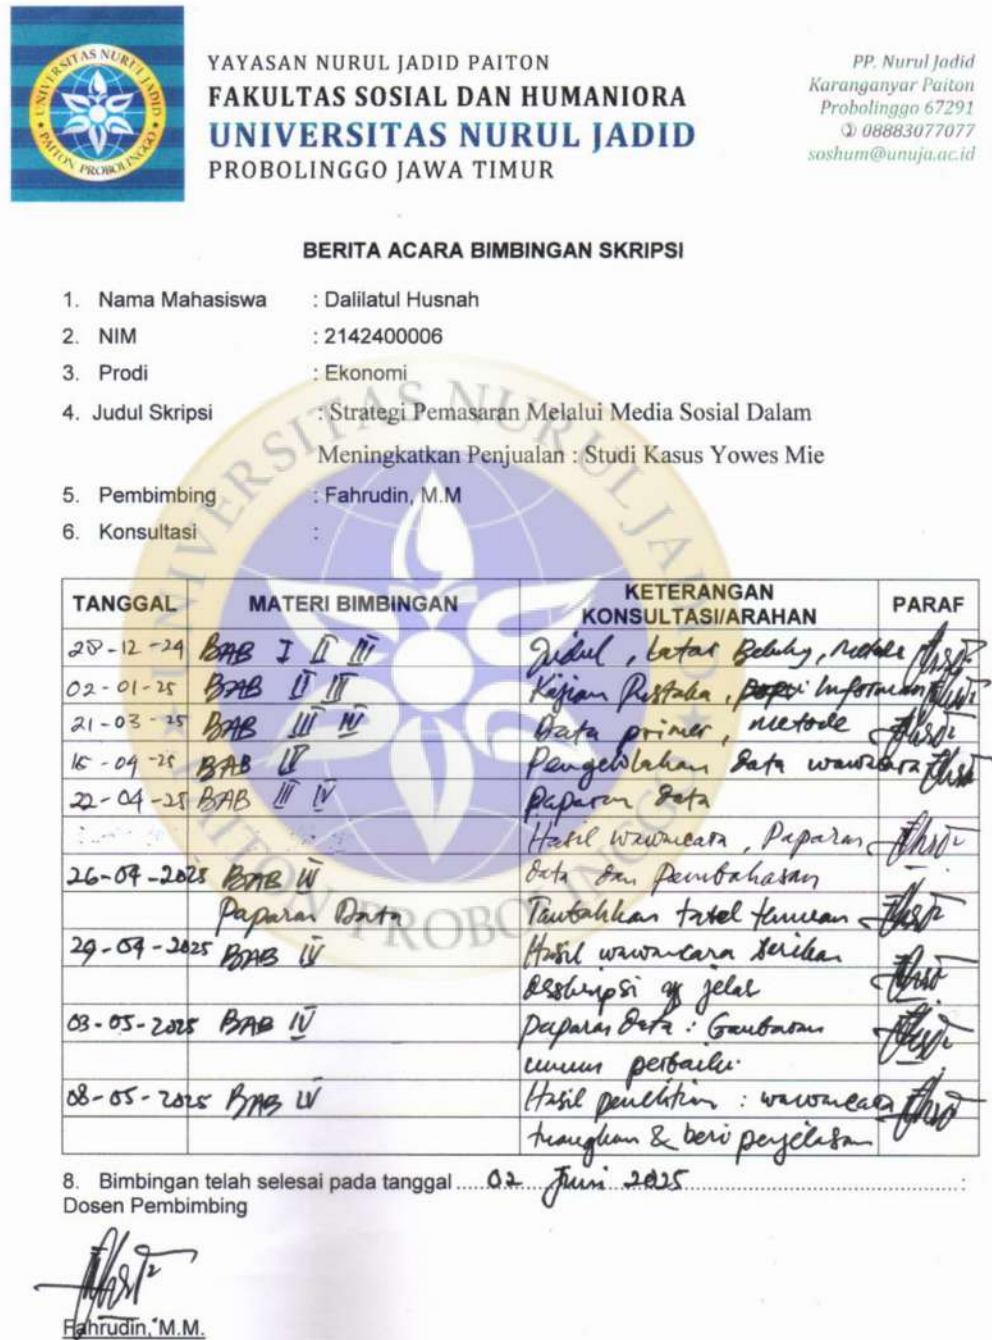 UNIVERSITAS NURUL JADID
PAITON PROBOLINGGO
YAYASAN NURUL JADID PAITON
FAKULTAS SOSIAL DAN HUMANIORA
UNIVERSITAS NURUL JADID
PROBOLINGGO JAWA TIMUR
PP. Nurul Jadid
Karanganyar Paiton
Probolinggo 67291
08883077077
soshum@unuja.ac.id
BERITA ACARA BIMBINGAN SKRIPSI
1. Nama Mahasiswa : Dalilatul Husnah
2. NIM : 2142400006
3. Prodi : Ekonomi
4. Judul Skripsi : Strategi Pemasaran Melalui Media Sosial Dalam
Meningkatkan Penjualan : Studi Kasus Yowes Mie
5. Pembimbing : Fahrudin, M.M
6. Konsultasi :
UNIVERSITAS NURUL JADID
PAITON PROBOLINGGO
TANGGAL MATERI BIMBINGAN KETERANGAN KONSULTASI/ARAHAN PARAF
28-12-24 BAB I II III Judul, Latar Belakang, Metode
02-01-25 BAB II III Kajian Pustaka, Informan
21-03-25 BAB III IV Data primer, metode
-04-25 BAB IV Pengelolahan data wawancara
22-04-25 BAB III IV Paparan data
Hasil wawancara, Paparan
26-04-2025 BAB IV data dan Pembahasan
Paparan Data Tambahkan tabel temuan
29-04-2025 BAB IV Hasil wawancara berikan
deskripsi yg jelas
03-05-2025 BAB IV Paparan data : Gambaran
umum perbaiki
08-05-2025 BAB IV Hasil penelitian : wawancara
& beri penjelasan
8. Bimbingan telah selesai pada tanggal ..... 02 Juni 2025 ..... :
Dosen Pembimbing
Fahrudin, M.M.